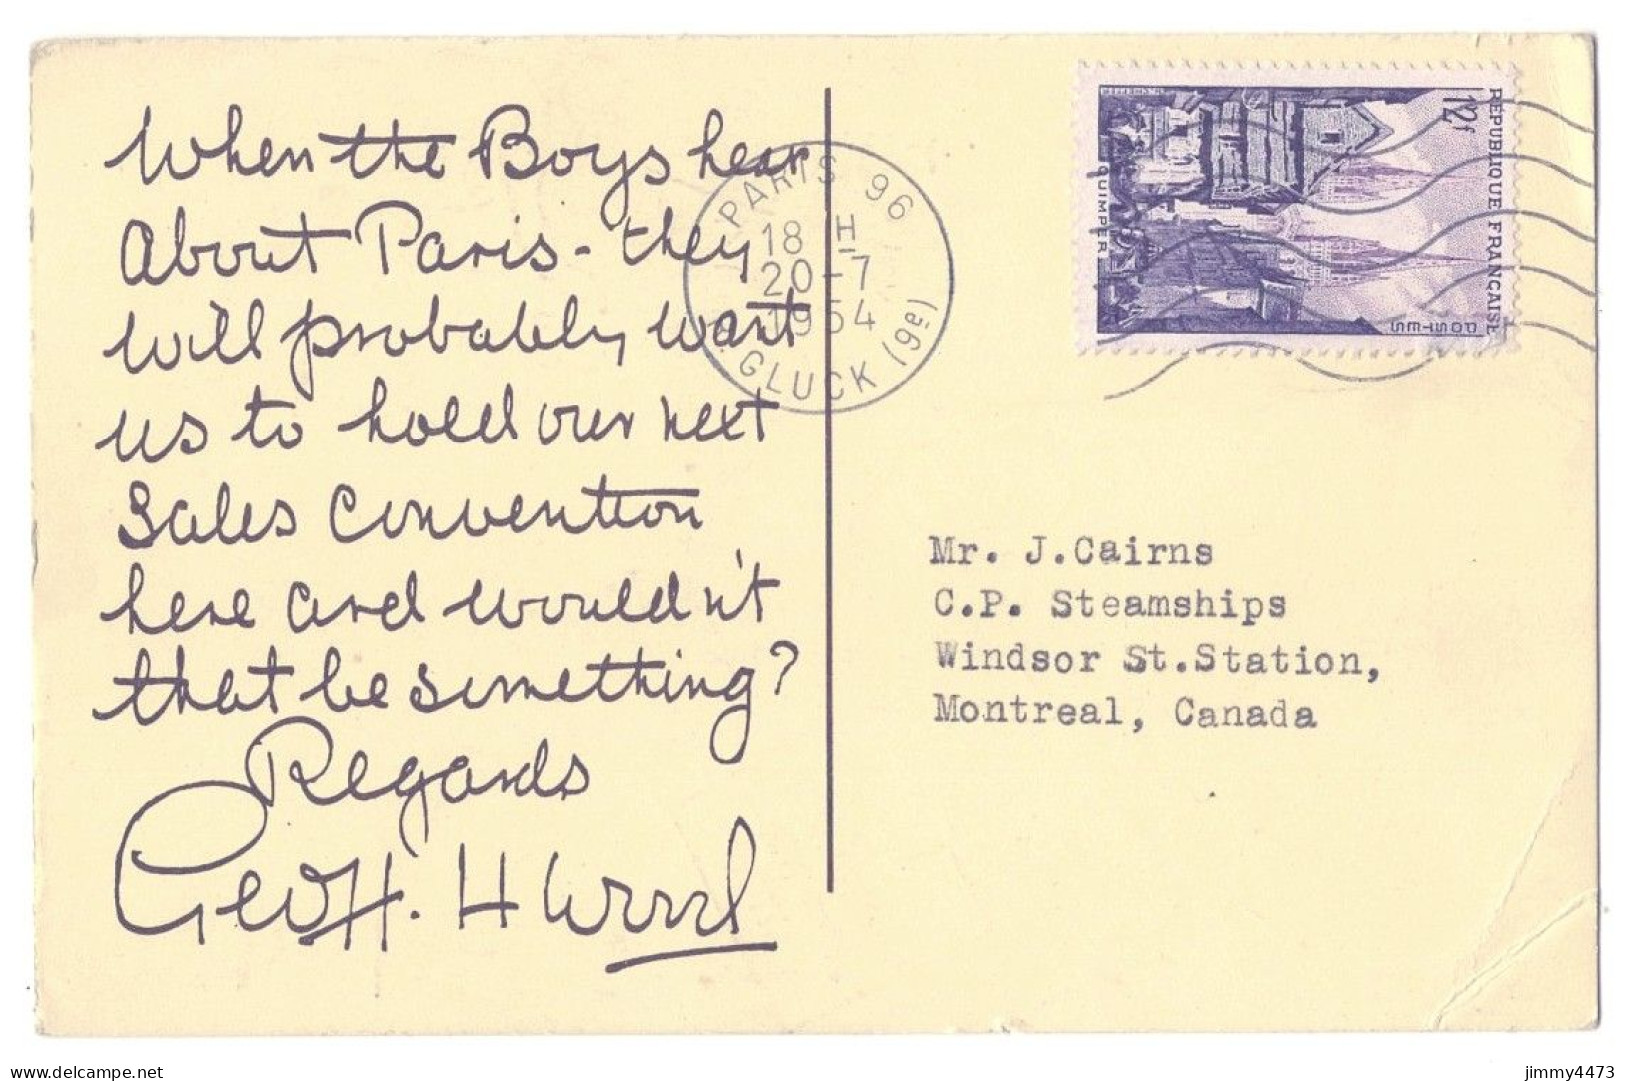 When the Boys hear
About Paris - they
will probably want
us to hold our next
Sales Convention
here and wouldn't
that be something?
Regards
Geoff. H Wood
PARIS 96
18 H
20-7
1954
GLUCK (9e)
REPUBLIQUE FRANÇAISE
12f
POSTES
QUIMPER
Mr. J.Cairns
C.P. Steamships
Windsor St.Station,
Montreal, Canada
delcampe.net
jimmy4473